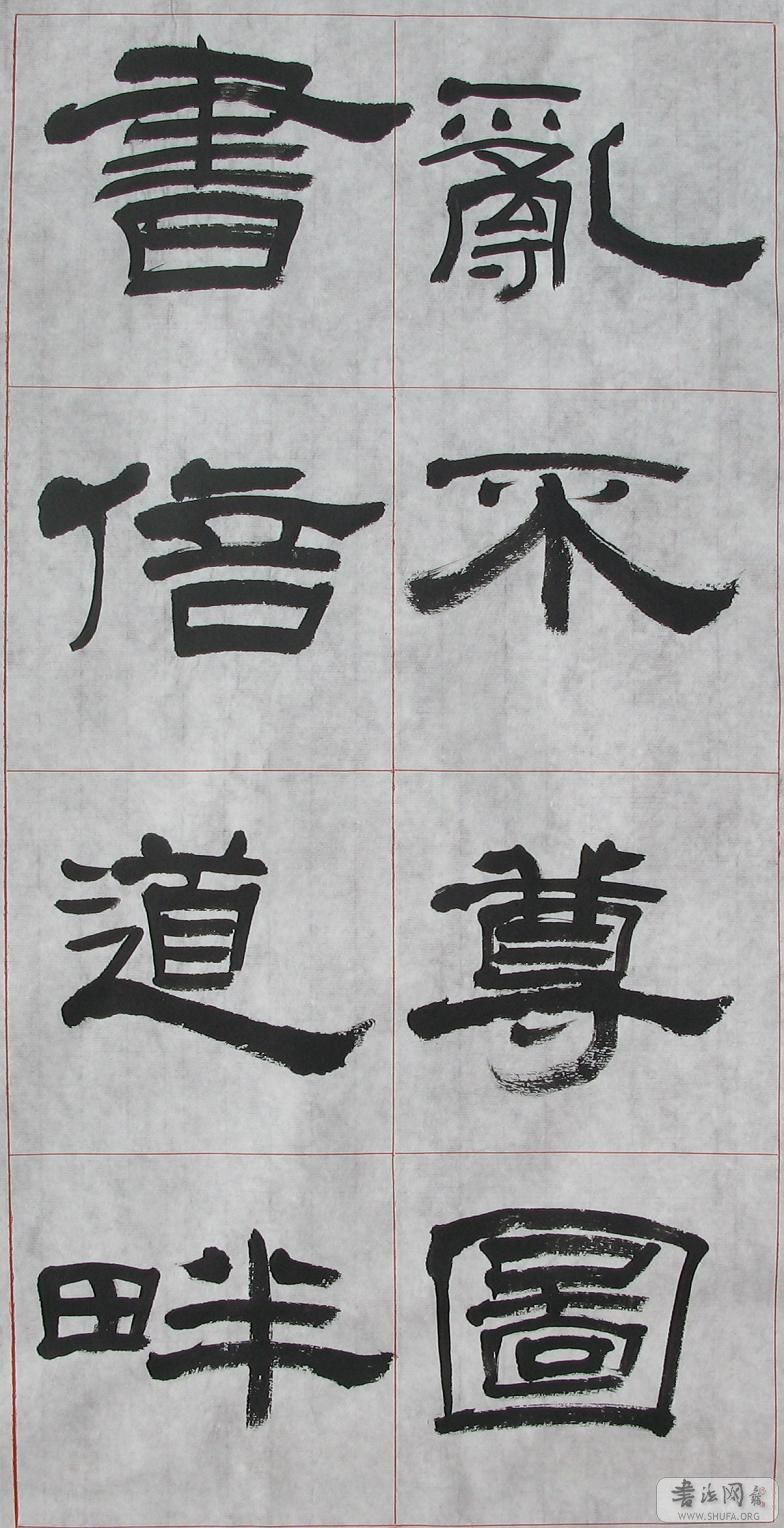 亂不尊圖
書倍道畔
書法网
WWW.SHUFA.ORG